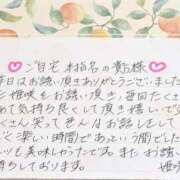 ご自宅 本指名の貴方様
昨日はお誘い頂きありがとうございました
姫咲をお誘い頂き、毎回たくさ
めて気持ち良くして頂き嬉しいで
くさん笑って
く楽しい時間であっという間でした
ツも美味しかったです。また、お誘い
待ちしております。